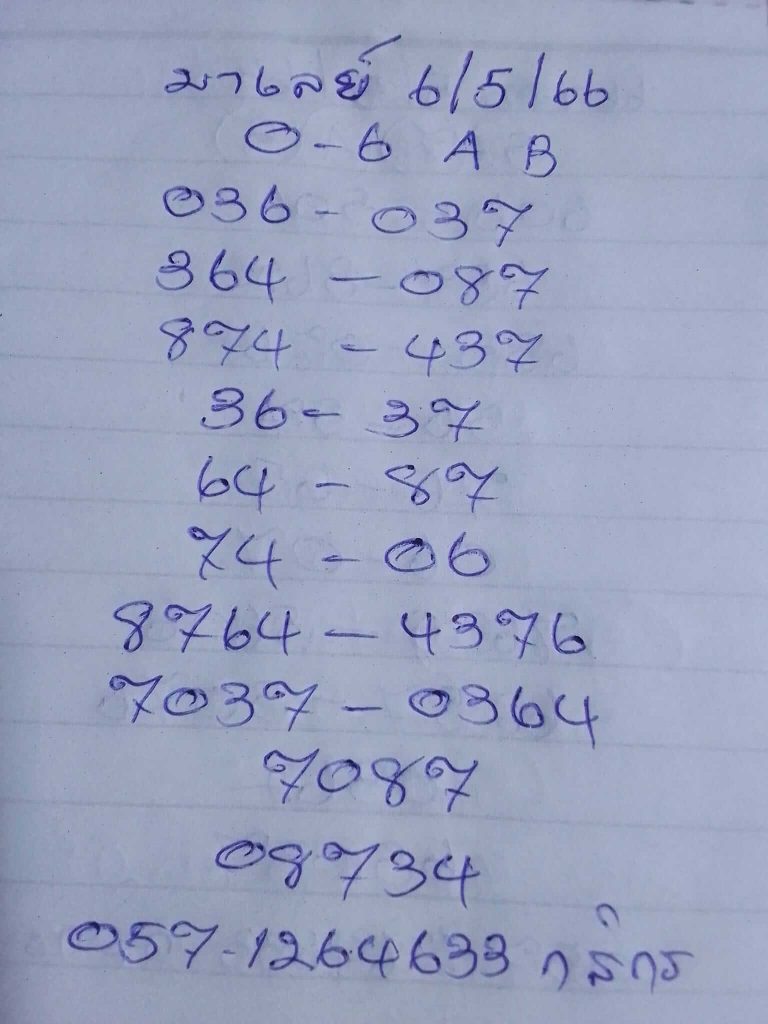 มาเลย์ 6/5/66
0-6 A B
036 - 037
364 - 087
874 - 437
36 - 37
64 - 87
74 - 06
8764 - 4376
7037 - 0364
7087
08734
057-1264633 กสิกร